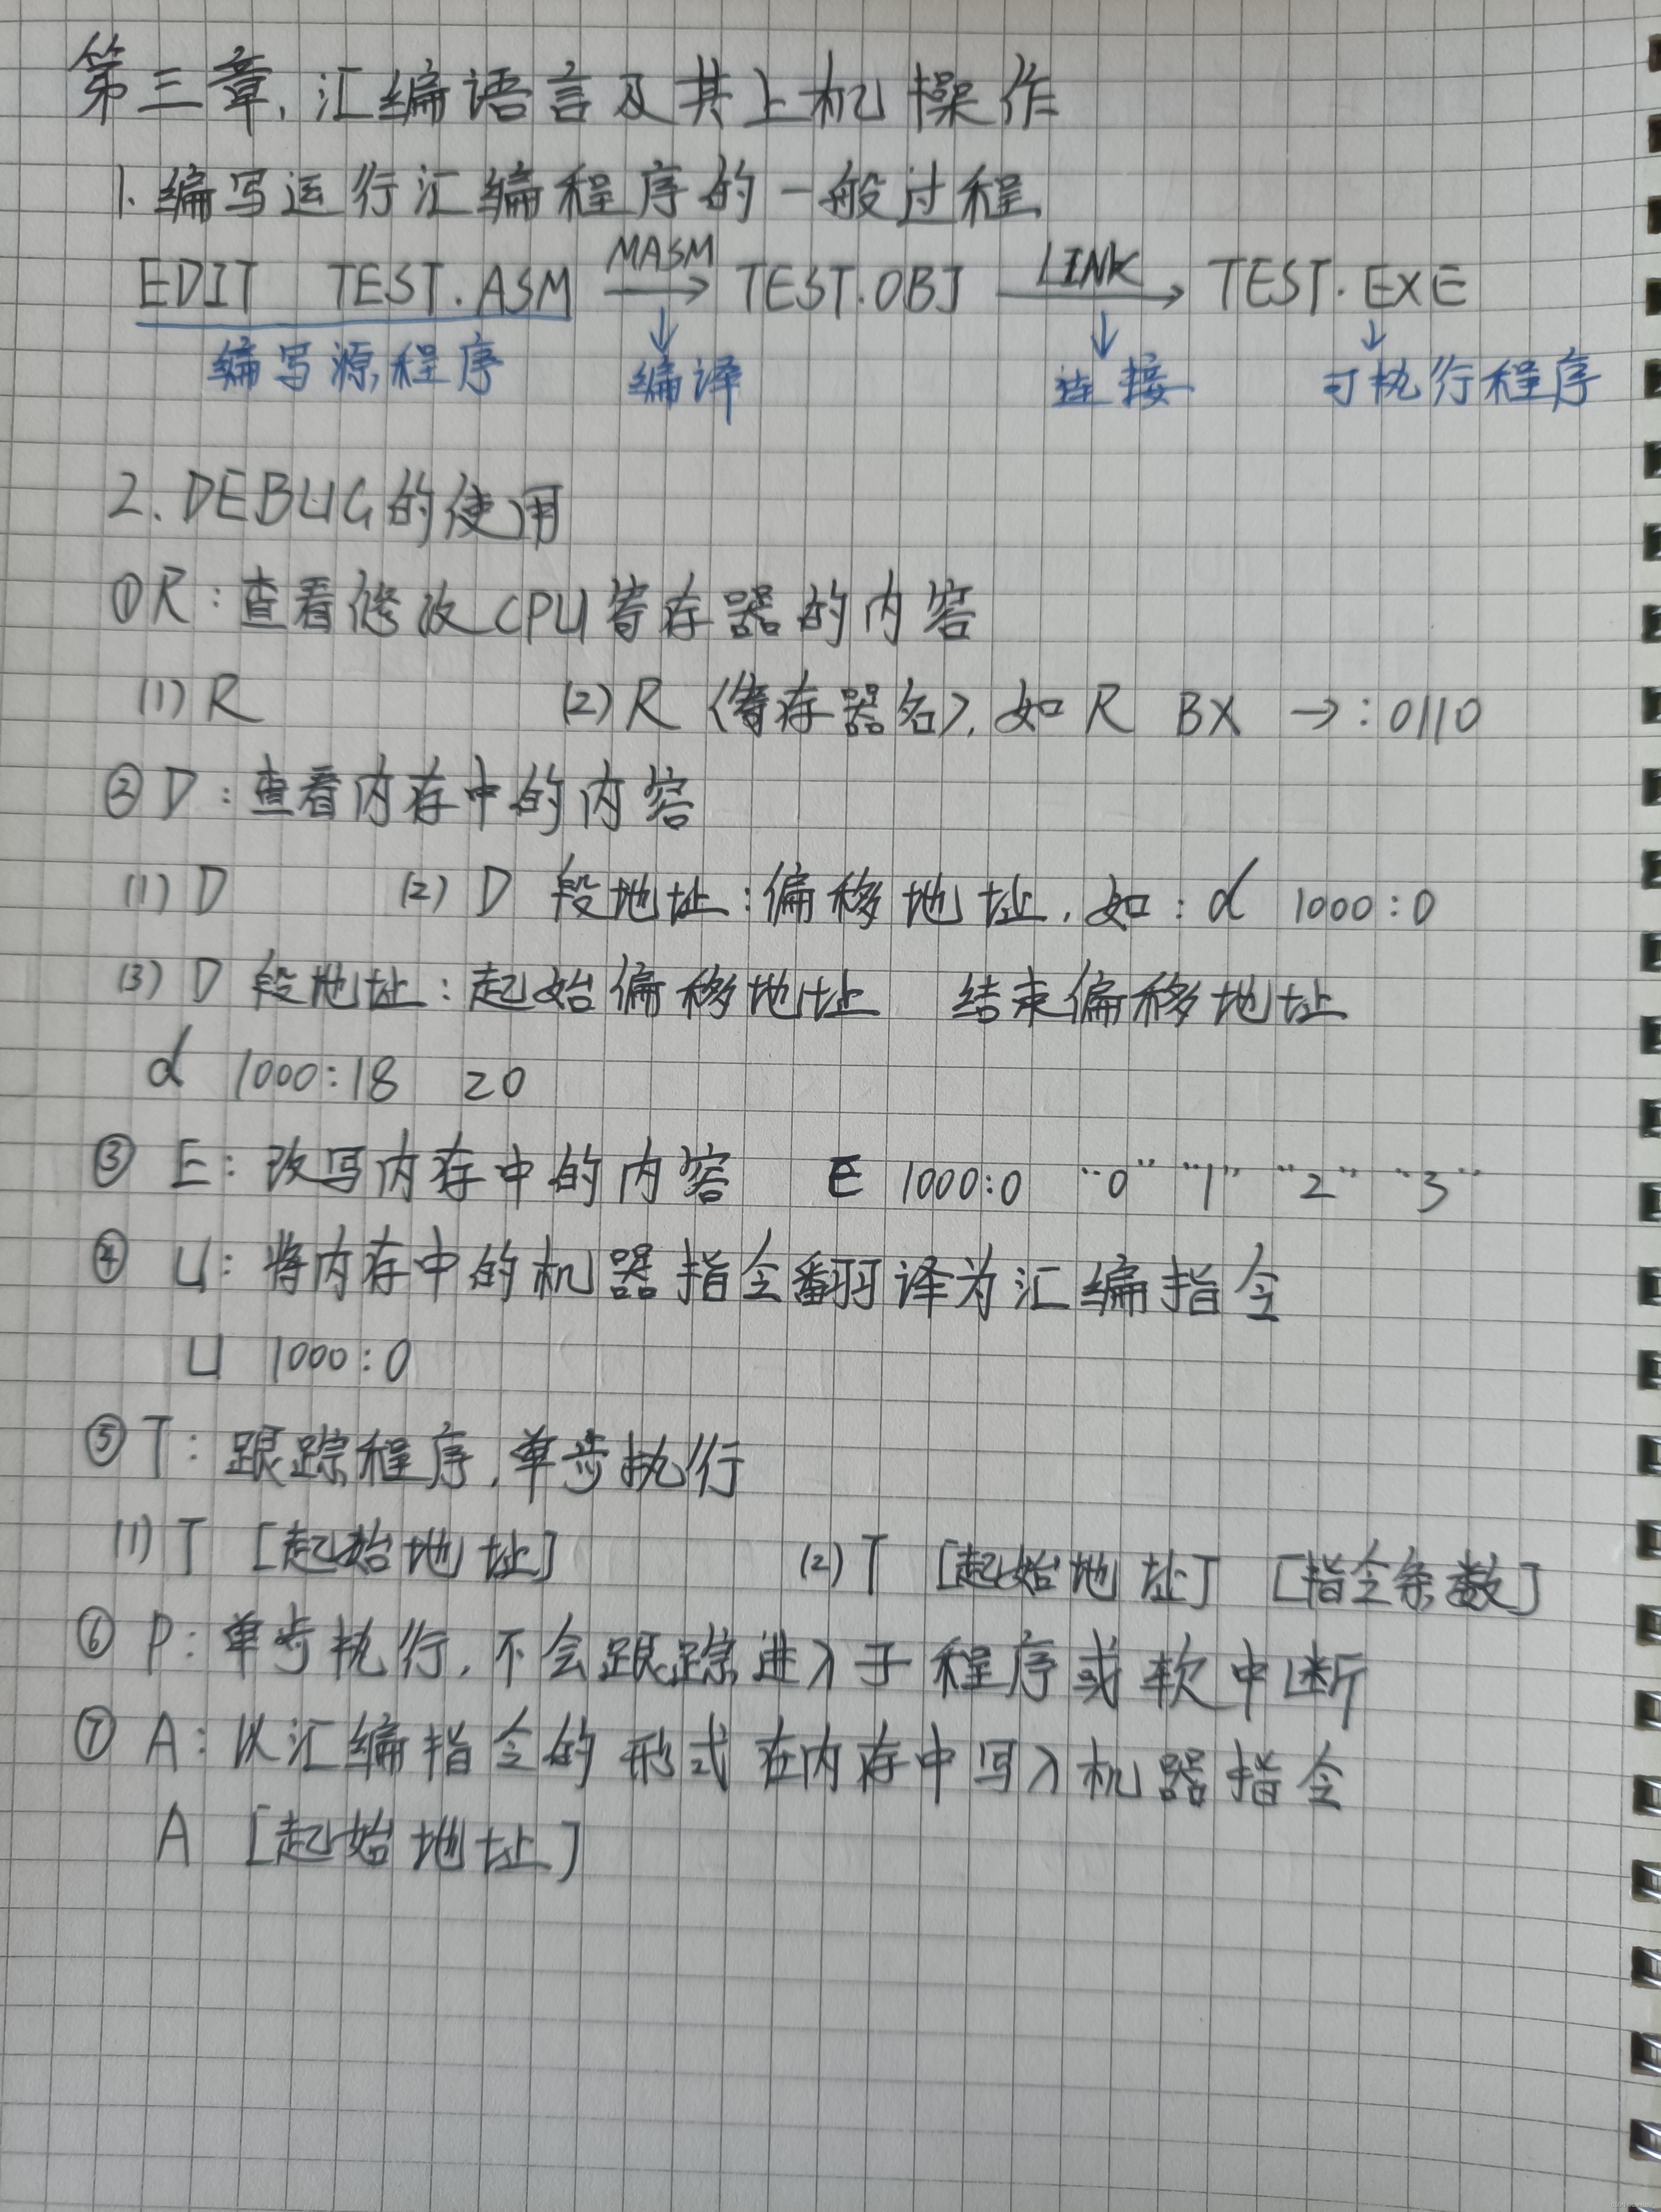 第三章,汇编语言及其上机操作
1.编写运行汇编程序的一般过程
EDIT TEST.ASM MASM→ TEST.OBJ LINK→ TEST.EXE
编写源程序 ↓编译 ↓连接 ↓可执行程序
2.DEBUG的使用
①R:查看修改CPU寄存器的内容
(1)R (2)R〈寄存器名〉,如 R BX →:0110
②D:查看内存中的内容
(1)D (2)D 段地址:偏移地址,如:d 1000:0
(3)D 段地址:起始偏移地址 结束偏移地址
d 1000:18 20
③ E:改写内存中的内容 E 1000:0 "0" "1" "2" "3"
④ U:将内存中的机器指令翻译为汇编指令
U 1000:0
⑤T:跟踪程序,单步执行
(1)T [起始地址] (2)T [起始地址] [指令条数]
⑥ P:单步执行,不会跟踪进入子程序或软中断
⑦ A:以汇编指令的形式在内存中写入机器指令
A [起始地址]